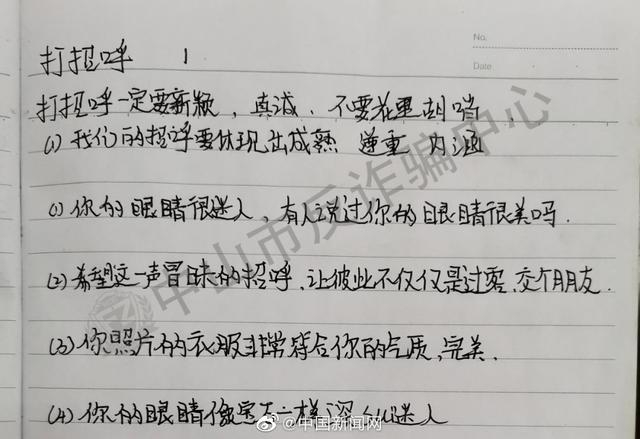 No.
打招呼 1
Date
打招呼一定要新颖，真诚、不要花里胡哨.
(1) 我们的招呼要体现出成熟 重 内涵
(1) 你的眼睛很迷人，有人说过你的眼睛很美吗.
(2) 希望这一声冒昧的招呼，让彼此不仅仅是过客，交个朋友.
(3) 你照片的衣服非常符合你的气质，完美.
(4) 你的眼睛像宝石一样深 迷人
中山市反诈骗中心
@中国新闻网